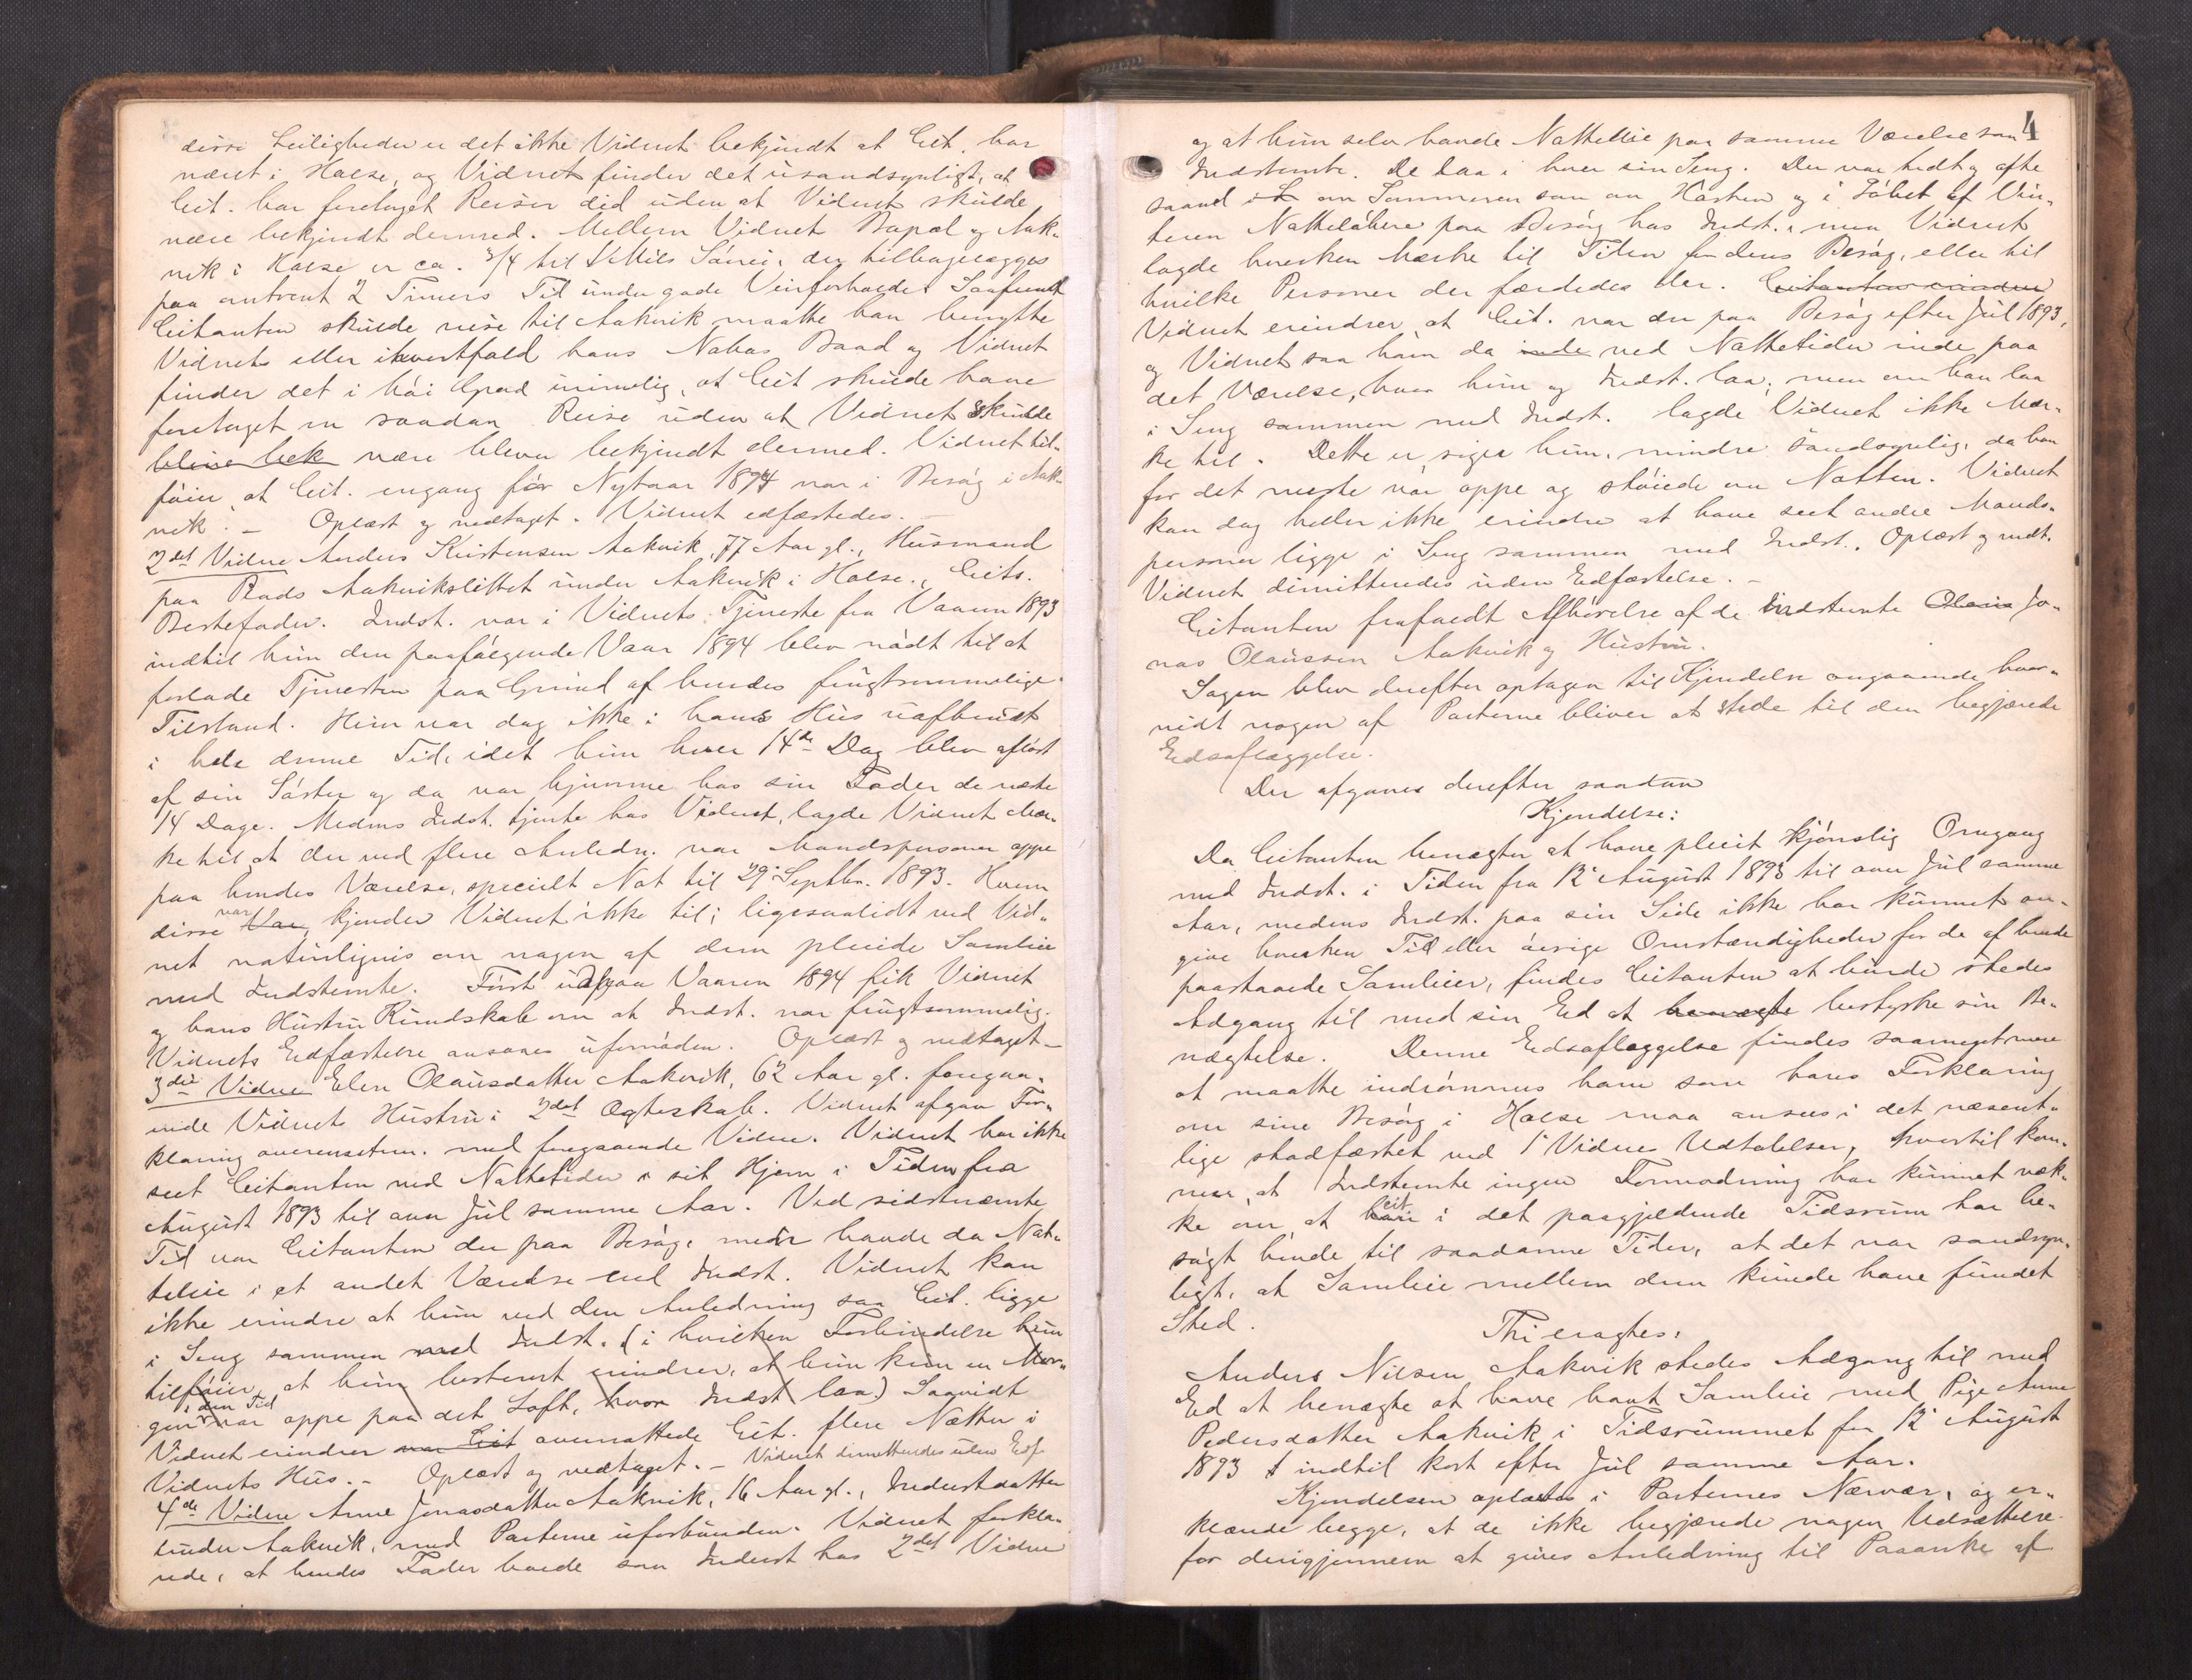 disse Leiligheder er det ikke Vidnet bekjendt at Cit. har
været i Halse, og Vidnet finder det usandsynligt, at
Cit. har foretaget Reiser did uden at Vidnet skulde
være bekjendt dermed. Mellem Vidnet Bopæl og Aak-
vik i Halse er ca. 3/4 til 1 Mils Søvei, der tilbagelægges
paa omtrent 2 Timers Tid under gode Veirforholde. Saafremt
Citanten skulde reise til Aakvik maatte han benytte
Vidnets eller ihvertfald hans Nabos Baad og Vidnet
finder det i høi Grad urimelig, at Cit skulde have
foretaget en saadan Reise uden at Vidnet skulde
blive bek være bleven bekjendt dermed. Vidnet til-
føier, at Cit. engang før Nytaar 1894 var i Besøg i Aak-
vik. – Oplæst og vedtaget. Vidnet edfæstedes. –
2det Vidne Anders Kristensen Aakvik, 77 Aar gl., Husmand
paa Plads Aakvikslettet under Aakvik i Halse., Cits.
Bestefader. Indst. var i Vidnets Tjeneste fra Vaaren 1893
indtil hun den paafølgende Vaar 1894 blev nødt til at
forlade Tjenesten paa Grund af hendes frugtsommelige
Tilstand. Hun var dog ikke i hans Hus uafbrudt
i hele denne Tid, idet hun hver 14de Dag blev afløst
af sin Søster og da var hjemme hos sin Fader de næste
14 Dage. Medens Indst. tjente hos Vidnet, lagde Vidnet Mær-
ke til, at der ved flere Anledn. var Mandspersoner oppe
paa hendes Værelse, specielt Nat til 29 Septbr. 1893. Hvem
disse var Var, kjender Vidnet ikke til; ligesaalidt ved Vid-
net naturligvis om nogen af dem pleiede Samleie
med Indstemte. Først udpaa Vaaren 1894 fik Vidnet
og hans Hustru Kundskab om at Indst. var frugtsommelig.
Vidnets Edfæstelse ansaaes ufornøden. Oplæst og vedtaget –
3die Vidne Elen Olausdatter Aakvik, 62 Aar gl. foregaa-
ende Vidnets Hustru i 2det Ægteskab. Vidnet afgav For-
klaring overensstem. med foregaaende Vidne. Vidnet har ikke
seet Citanten ved Nattetider i sit Hjem i Tiden fra
August 1893 til over Jul samme Aar. Ved sidstnævnte
Tid var Citanten der paa Besøg, men havde da Nat-
teleie i et andet Værelse end Indst. Vidnet kan
ikke erindre at hun ved den Anledning saa Cit. ligge
i Seng sammen med Indst. (i hvilken Forbindelse hun
tilføier, at hun bestemt erindrer, at hun kun en Mor-
gen i den Tid var oppe paa det Loft, hvor Indst laa.) Saavidt
Vidnet erindrer var Cit overnattede Cit. flere Nætter i
Vidnets Hus. – Oplæst og vedtaget. – Vidnet dimitteredes uden Edf.
4de Vidne Anne Jonasdatter Aakvik, 16 Aar gl., Inderstdatter
under Aakvik, med Parterne uforbunden. Vidnet forkla-
rede, at hendes Fader boede som Inderst hos 2det Vidne
4
og at hun selv havde Natteleie paa samme Værelse som
Indstemte. De laa i hver sin Seng. Der var tidt og ofte
saavel om Sommeren som om Høsten og i Løbet af Vin-
teren Natteløbere paa Besøg hos Indst., men Vidnet
lagde hverken Mærke til Tiden for deres Besøg, eller til
hvilke Personer der færdedes der. Citanten erindrer
Vidnet erindrer, at Cit. var der paa Besøg efter Jul 1893,
og Vidnet saa ham da inde ved Nattetider inde paa
det Værelse, hvor hun og Indst. laa; men om han laa
i Seng sammen med Indst. lagde Vidnet ikke Mær-
ke til. Dette er, siger hun, mindre sandsynlig, da han
for det meste var oppe og støiede om Natten. Vidnet
kan dog heller ikke erindre at have seet andre Mands-
personer ligge i Seng sammen med Indst. Oplæst og vedt.
Vidnet dimitteredes uden Edfæstelse. –
Citanten frafaldt Afhørelse af de indstevnte Olaus Jo-
nas Olaussen Aakvik og Hustru.
Sagen blev derefter optagen til Kjendelse angaaende hvor-
vidt nogen af Parterne bliver at stede til den begjærede
Edsaflæggelse.
Der afgaves derefter saadan
Kjendelse:
Da Citanten benægter at have pleiet kjønslig Omgang
med Indst. i Tiden fra 12 August 1893 til over Jul samme
Aar, medens Indst. paa sin Side ikke har kunnet an-
give hverken Tid eller øvrige Omstændigheder for de af hende
paastaaede Samleier, findes Citanten at burde stedes
Adgang til med sin Ed at benægte bestyrke sin Be-
nægtelse. Denne Edsaflæggelse findes saameget mere
at maatte indrømmes ham som hans Forklaring
om sine Besøg i Halse maa ansees i det væsent-
lige stadfæstet ved 1' Vidnes Udtalelser, hvortil kom-
mer, at Indstemte ingen Formodning har kunnet væk-
ke om, at han cit. i det paagjældende Tidsrum har be-
søgt hende til saadanne Tider, at det var sandsyn-
ligt, at Samleie mellem dem kunde have fundet
Sted.
Thi eragtes:
Anders Nilsen Aakvik stedes Adgang til med
Ed at benægte at have havt Samleie med Pige Anne
Pedersdatter Aakvik i Tidsrummet fra 12' August
1893 indtil kort efter Jul samme Aar.
Kjendelsen oplæstes i Parternes Nærvær, og er-
klærede begge, at de ikke begjærede nogen Udsættelse
for derigjennem at gives Anledning til Paaanke af